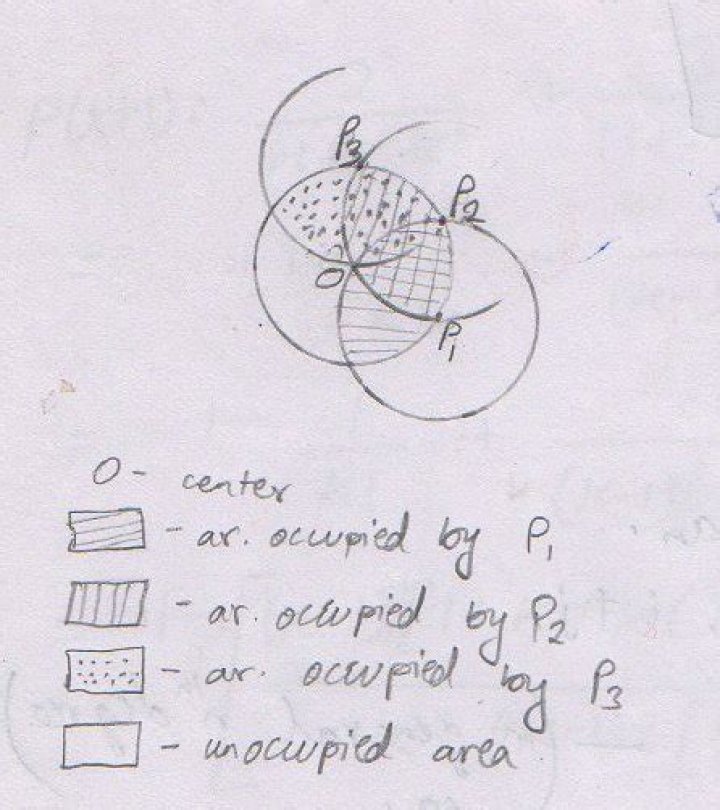 P3
P2
O
P1
O - center
- ar. occupied by P1
- ar. occupied by P2
- ar. occupied by P3
- unoccupied area